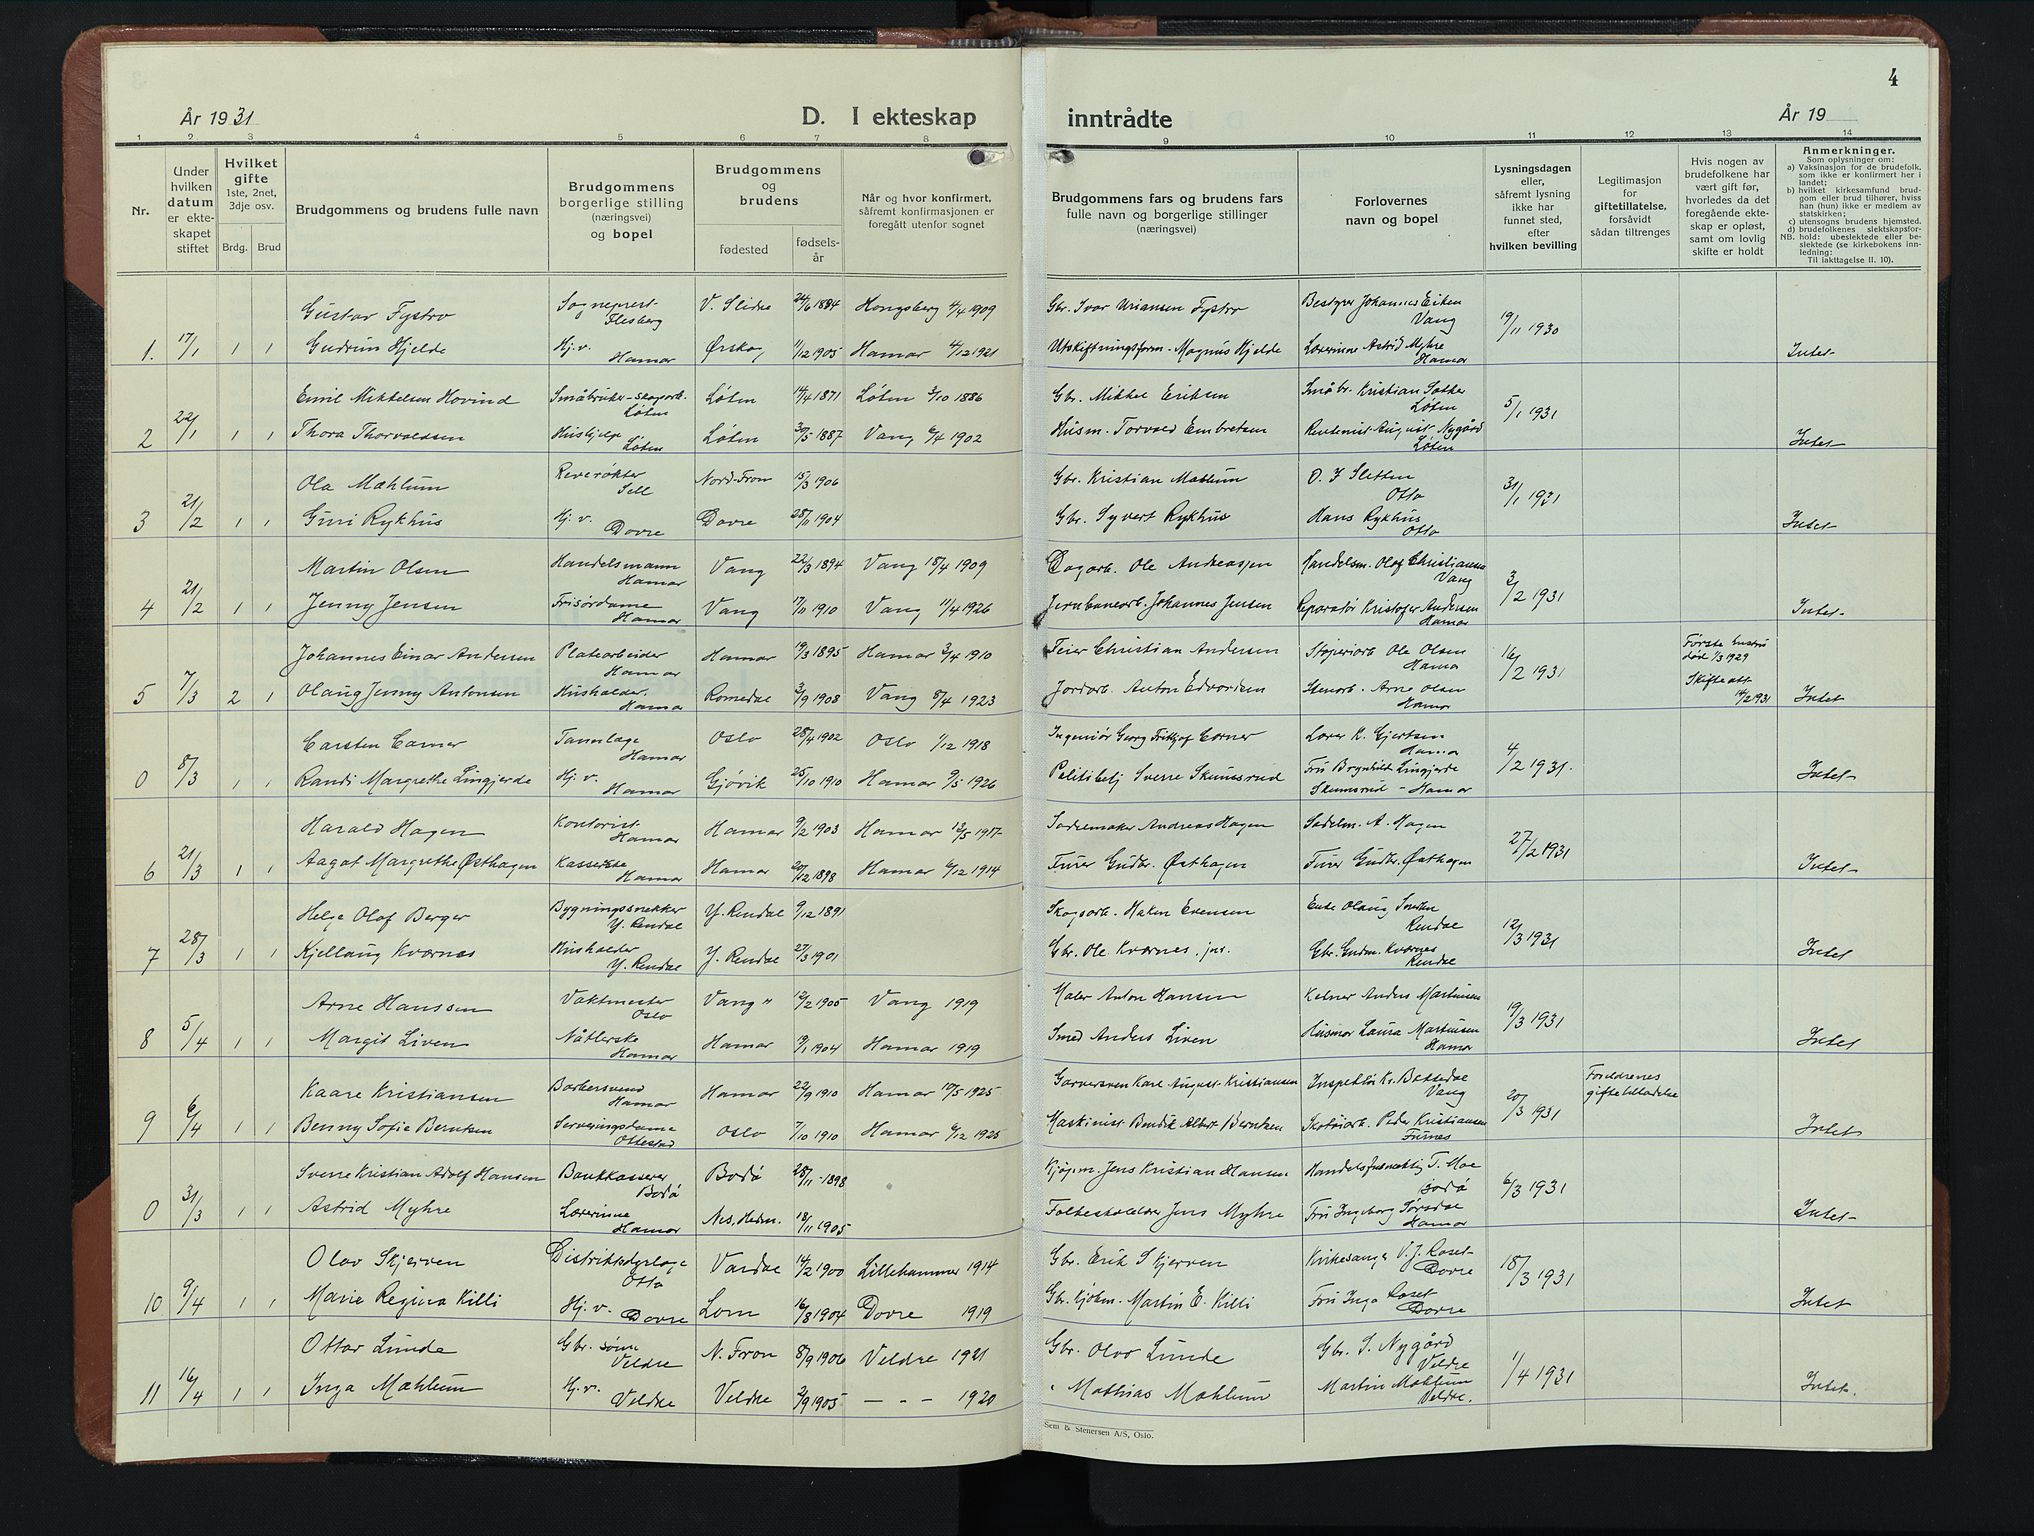 4
År 1931
D. I ekteskap inntrådte
År 19
1 2 3 4 5 6 7 8 9 10 11 12 13 14
Nr.
Under hvilken datum er ekteskapet stiftet
Hvilket gifte 1ste, 2net, 3dje osv.
Brdg. Brud
Brudgommens og brudens fulle navn
Brudgommens borgerlige stilling (næringsvei) og bopel
Brudgommens og brudens
fødested
fødsels-år
Når og hvor konfirmert, såfremt konfirmasjonen er foregått utenfor sognet
Brudgommens fars og brudens fars fulle navn og borgerlige stillinger (næringsvei)
Forlovernes navn og bopel
Lysningsdagen eller, såfremt lysning ikke har funnet sted, efter hvilken bevilling
Legitimasjon for giftetillatelse, forsåvidt sådan tiltrenges
Hvis nogen av brudefolkene har vært gift før, hvorledes da det foregående ekteskap er opløst, samt om lovlig skifte er holdt
Anmerkninger.
Som oplysninger om:
a) Vaksinasjon for de brudefolk, som ikke er konfirmert her i landet;
b) hvilket kirkesamfund brudgom eller brud tilhører, hviss han (hun) ikke er medlem av statskirken;
c) utensogns brudens hjemsted.
d) brudefolkenes slektskapsforhold: ubeslektede eller beslektede (se kirkebokens innledning:
NB.
Til iakttagelse II. 10).
Gustav Fystro Sogneprest Flesberg V. Slidre 24/6 1884 Kongsberg 4/4 1909 Gbr. Ivar Uriansen Fystro Bestyrer Johannes Eiken Vang 19/11 1930
1. 17/1 1 1 Gudrun Hjelde Hj.v. Hamar Ørskog 1/12 1905 Hamar 4/12 1921 Utskiftningsform. Magnus Hjelde Lærerinne Astrid Myhre Hamar Intet
Emil Mikkelsen Hovind Småbruker-skogarb. Løten Løten 14/4 1871 Løten 3/10 1886 Gbr. Mikkel Eriksen Småbr. Kristian Sæther Løten 5/1 1931
2 22/1 1 1 Thora Thorvaldsen Hushjelp Løten Løten 30/5 1887 Vang 6/4 1902 Husm. Torvald Embretsen Rentenist August Nygård Løten Intet
Ola Mæhlum Reverøkter Sell Nord-Fron 15/3 1906 Gbr. Kristian Mæhlum O. J Sletten Otta 31/1 1931
3 21/2 1 1 Guri Rykhus Hj.v. Dovre Dovre 28/11 1904 Gbr. Syvert Rykhus Hans Rykhus Otta Intet
Martin Olsen Handelsmann Hamar Vang 22/3 1894 Vang 18/4 1909 Dagarb. Ole Andreassen Handelsm. Olaf Christiansen Vang 3/2 1931
4 21/2 1 1 Jenny Jensen Frisørdame Hamar Vang 17/11 1910 Vang 11/4 1926 Jernbanearb. Johannes Jensen Reparatør Kristofer Andersen Hamar Intet
Johannes Einar Andersen Platearbeider Hamar Hamar 19/3 1895 Hamar 3/4 1910 Feier Christian Andersen Støperiarb Ole Olsen Hamar 16/2 1931 Første hustru død 1/3 1929
5 7/3 2 1 Olaug Jenny Antonsen Husholder. Hamar Romedal 3/9 1908 Vang 8/4 1923 Jordarb. Anton Edvardsen Stenarb. Arne Olsen Hamar Skifteatt 14/2 1931 Intet
Carsten Corner Tannlæge Hamar Oslo 28/4 1902 Oslo 1/12 1918 Ingeniør Georg Fritjof Corner Lærer K. Gjertsen Hamar 4/2 1931.
0 8/3 1 1 Randi Margrethe Lingjerde Hj.v. Hamar Gjøvik 25/10 1910 Hamar 9/5 1926 Politibetj Sverre Skumsrud Fru Brynhild Lingjerde Skumsrud - Hamar Intet
Harald Hagen Kontorist Hamar Hamar 9/2 1903 Hamar 13/5 1917 Sadelmaker Andreas Hagen Sadelm. A. Hagen 27/2 1931
6 21/3 1 1 Aagot Margrethe Østhagen Kassererske Hamar Hamar 20/12 1898 Hamar 6/12 1914 Furer Gudbr. Østhagen Furer Gudbr. Østhagen Intet
Helge Olaf Berger Bygningssnekker Y. Rendal Y. Rendal 9/12 1891 Skogsarb. Haken Evensen Enke Olaug Rendal 12/3 1931
7 28/3 1 1 Kjellaug Kværnes Husholder Y. Rendal Y. Rendal 27/3 1901 Gbr. Ole Kværnes, jnr. Gbr. Gudm. Kværnes Rendal Intet
Arne Hanssen Vaktmester Oslo Vang " 12/2 1905 Vang 1919 Maler Anton Hansen Kelner Anders Martinsen 19/3 1931
8 5/4 1 1 Margit Liven Nåtlerske Hamar Hamar 19/1 1904 Hamar 1919 Smed Anders Liven Husmor Laura Martinsen Hamar Intet
Kaare Kristiansen Barbersvend Hamar Hamar 22/9 1910 Hamar 10/5 1925 Garversven Karl August Kristiansen Inspektør Kr. Bekkedal Vang 20/3 1931 Foreldrenes giftetilladelse
9 6/4 1 1 Benny Sofie Berntzen Serveringsdame Ottestad Oslo 7/10 1910 Hamar 6/12 1925 Maskinist Bendik Albert Berntzen Skotøiarb. Peder Kristiansen Furnes Intet
Sverre Kristian Adolf Hansen Bankkasserer Bodø Bodø 28/11 1898 Kjøpm. Jens Kristian Hansen Handelsfullmektig T. Moe Bodø 6/3 1931
0 31/3 1 1 Astrid Myhre Lærerinne Hamar Nes, Hedm. 18/11 1905 Folkeskolelærer Jens Myhre Fru Ingeborg Sørsdal Hamar Intet
Olav Skjerven Distriktsdyrlæge Otta Vardal 14/2 1900 Lillehammer 1914 Gbr. Erik Skjerven Kirkesanger V. J. Roset Dovre 18/3 1931
10 9/4 1 1 Marie Regina Killi Hj.v. Dovre Lom 16/8 1904 Dovre 1919 Gbr. kjøbm. Martin E. Killi Fru Inga Roset Dovre Intet
Ottar Lunde Gbr. sønn Veldre N. Fron 8/9 1906 Veldre 1921 Gbr. Olav Lunde Gbr. S. Nygård Veldre 1/4 1931
11 16/4 1 1 Inga Mæhlum Hj.v. Veldre Veldre 2/9 1905 - - - 1920 " Mathias Mæhlum Martin Mæhlum Veldre. Intet.
Sem & Stenersen A/S, Oslo.